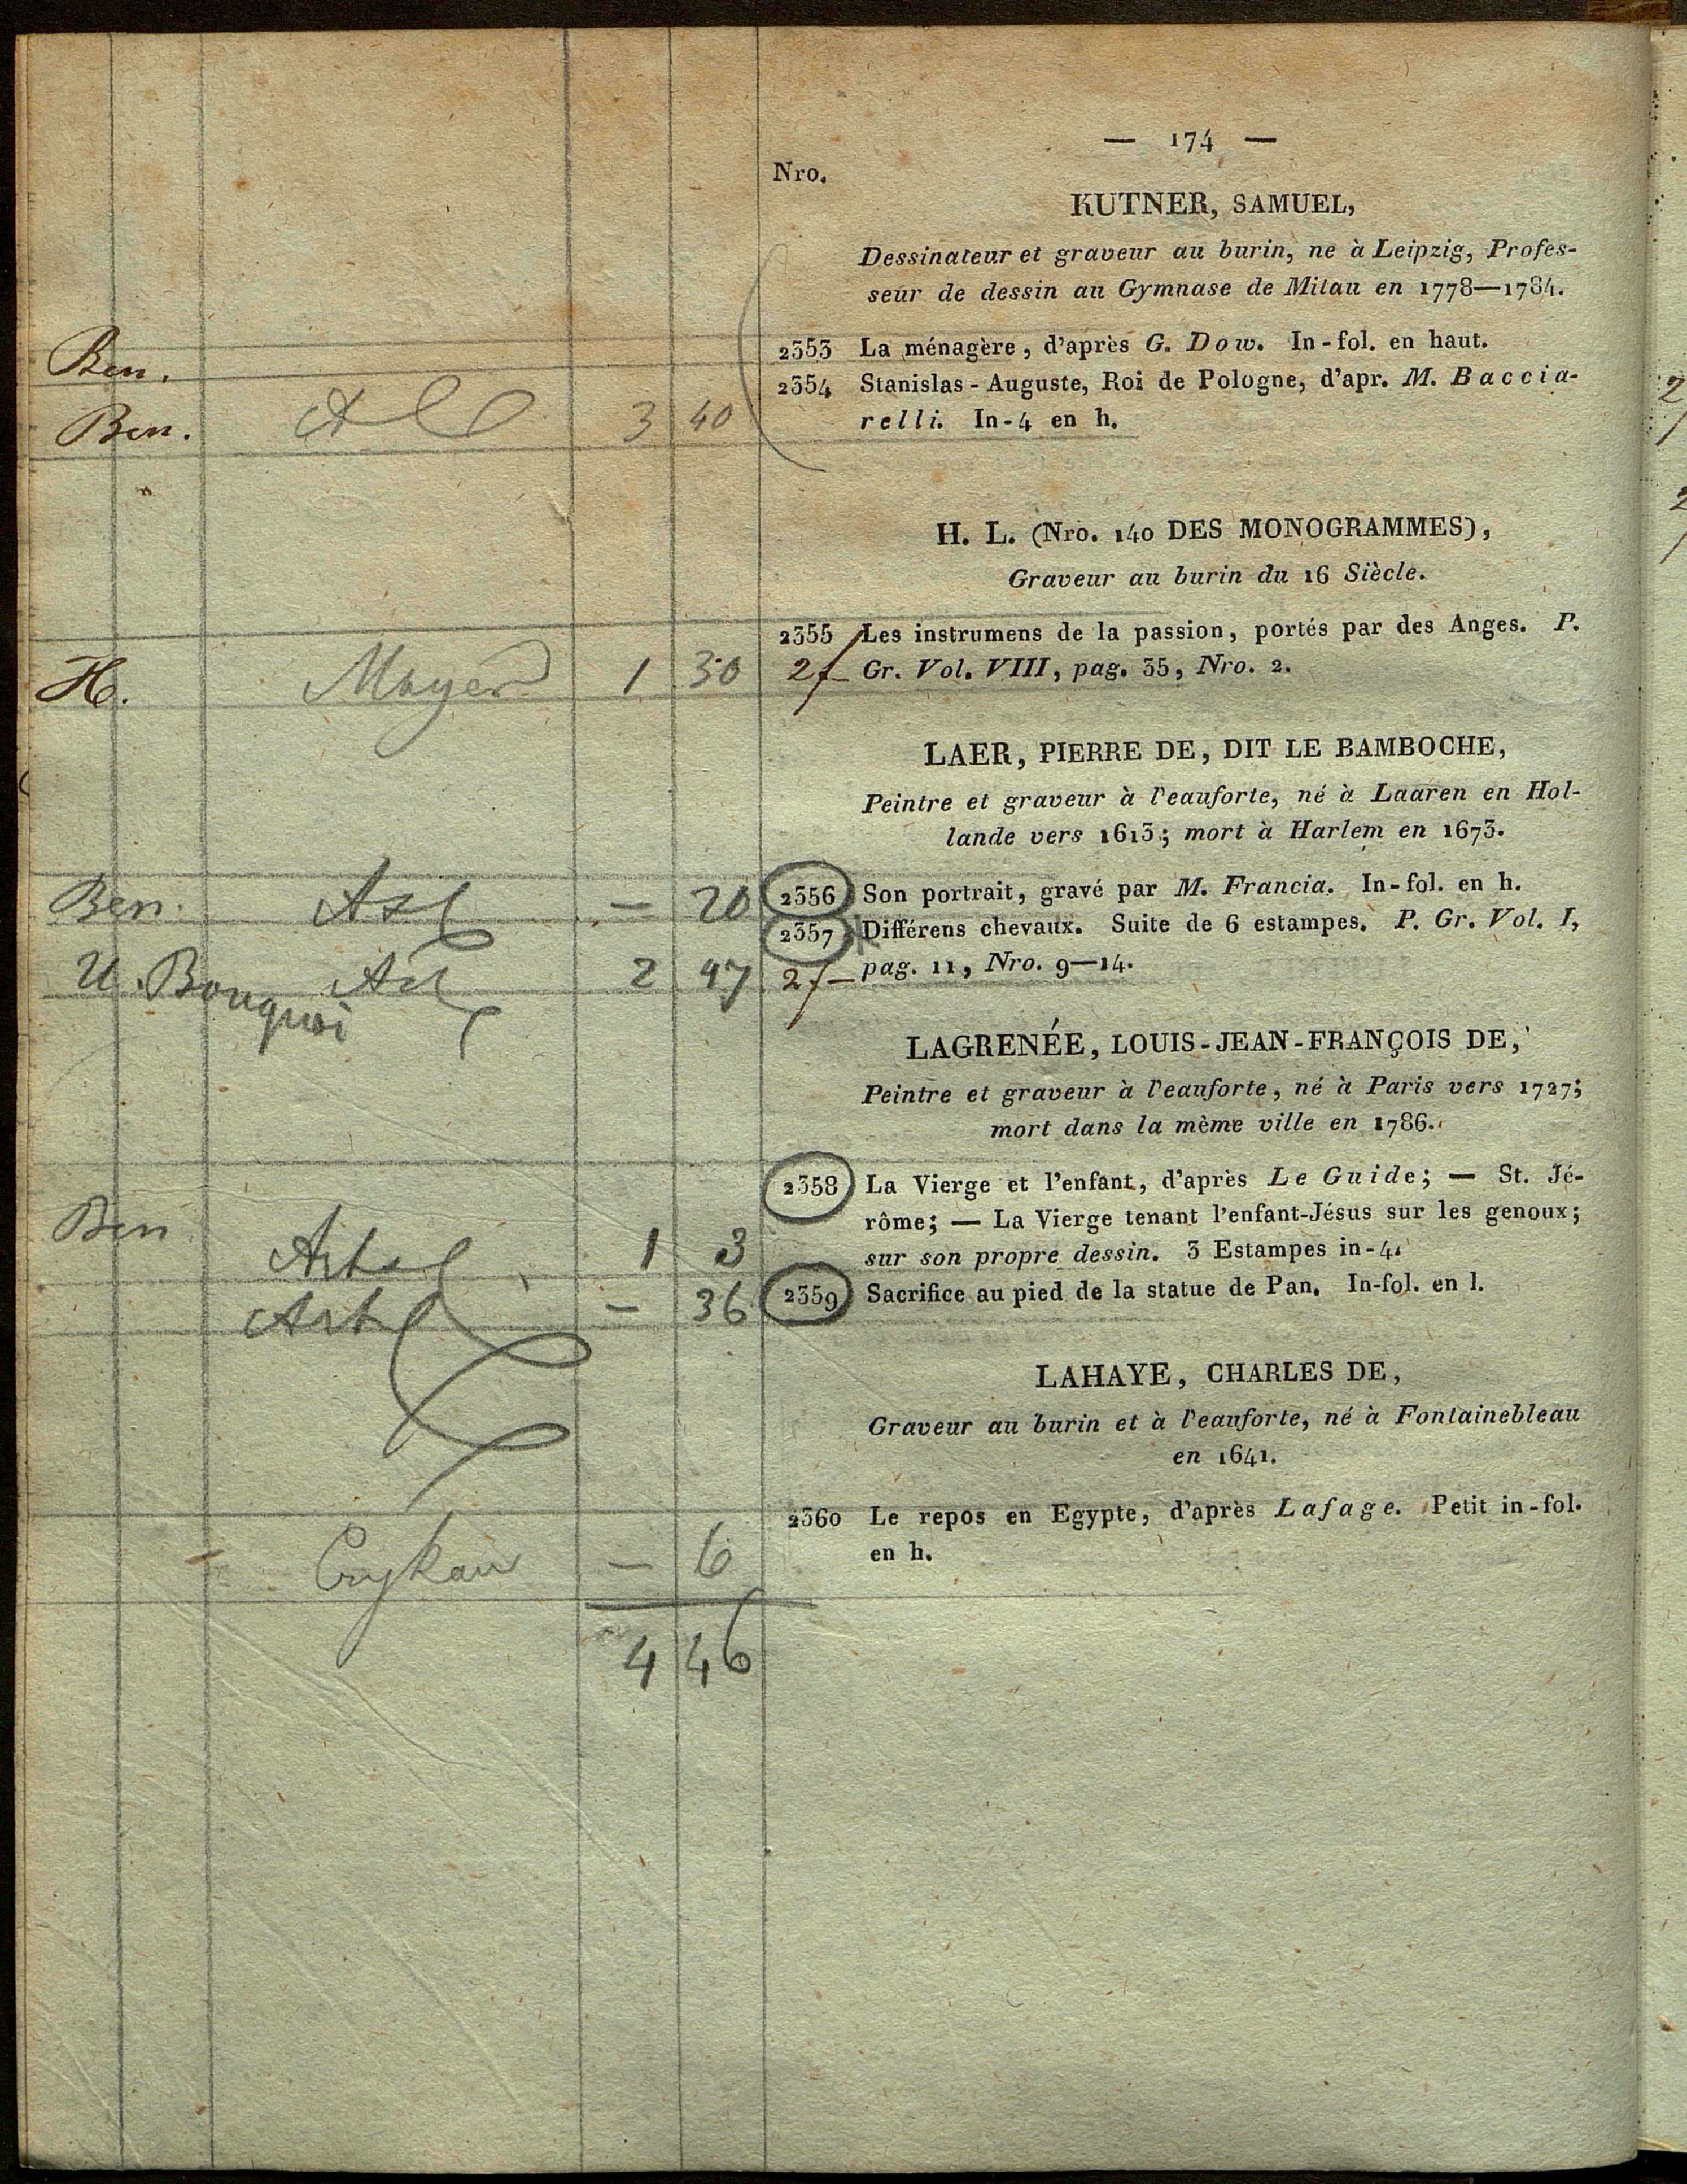 — 174 —
Nro.
KUTNER, SAMUEL,
Dessinateur et graveur au burin, ne à Leipzig, Profes-
seur de dessin au Gymnase de Mitau en 1778—1784.
Ben.
2353 La ménagère, d'après G. Dow. In-fol. en haut.
2354 Stanislas-Auguste, Roi de Pologne, d'apr. M. Baccia-
Ben. 3 40 relli. In-4 en h.
H. L. (Nro. 140 DES MONOGRAMMES),
Graveur au burin du 16 Siècle.
2355 Les instrumens de la passion, portés par des Anges. P.
H. Mayer 1 30 2f— Gr. Vol. VIII, pag. 35, Nro. 2.
LAER, PIERRE DE, DIT LE BAMBOCHE,
Peintre et graveur à l'eauforte, né à Laaren en Hol-
lande vers 1613; mort à Harlem en 1673.
Ben. — 20 2356 Son portrait, gravé par M. Francia. In-fol. en h.
2357 Différens chevaux. Suite de 6 estampes. P. Gr. Vol. I,
2 47 2f— pag. 11, Nro. 9—14.
Bouquoi
LAGRENÉE, LOUIS-JEAN-FRANÇOIS DE,
Peintre et graveur à l'eauforte, né à Paris vers 1727;
mort dans la même ville en 1786.
2358 La Vierge et l'enfant, d'après Le Guide; — St. Jé-
Ben rôme; — La Vierge tenant l'enfant-Jésus sur les genoux;
1 3 sur son propre dessin. 3 Estampes in-4.
— 36 2359 Sacrifice au pied de la statue de Pan. In-fol. en l.
LAHAYE, CHARLES DE,
Graveur au burin et à l'eauforte, né à Fontainebleau
en 1641.
2360 Le repos en Egypte, d'après Lafage. Petit in-fol.
— 6 en h.
4 46